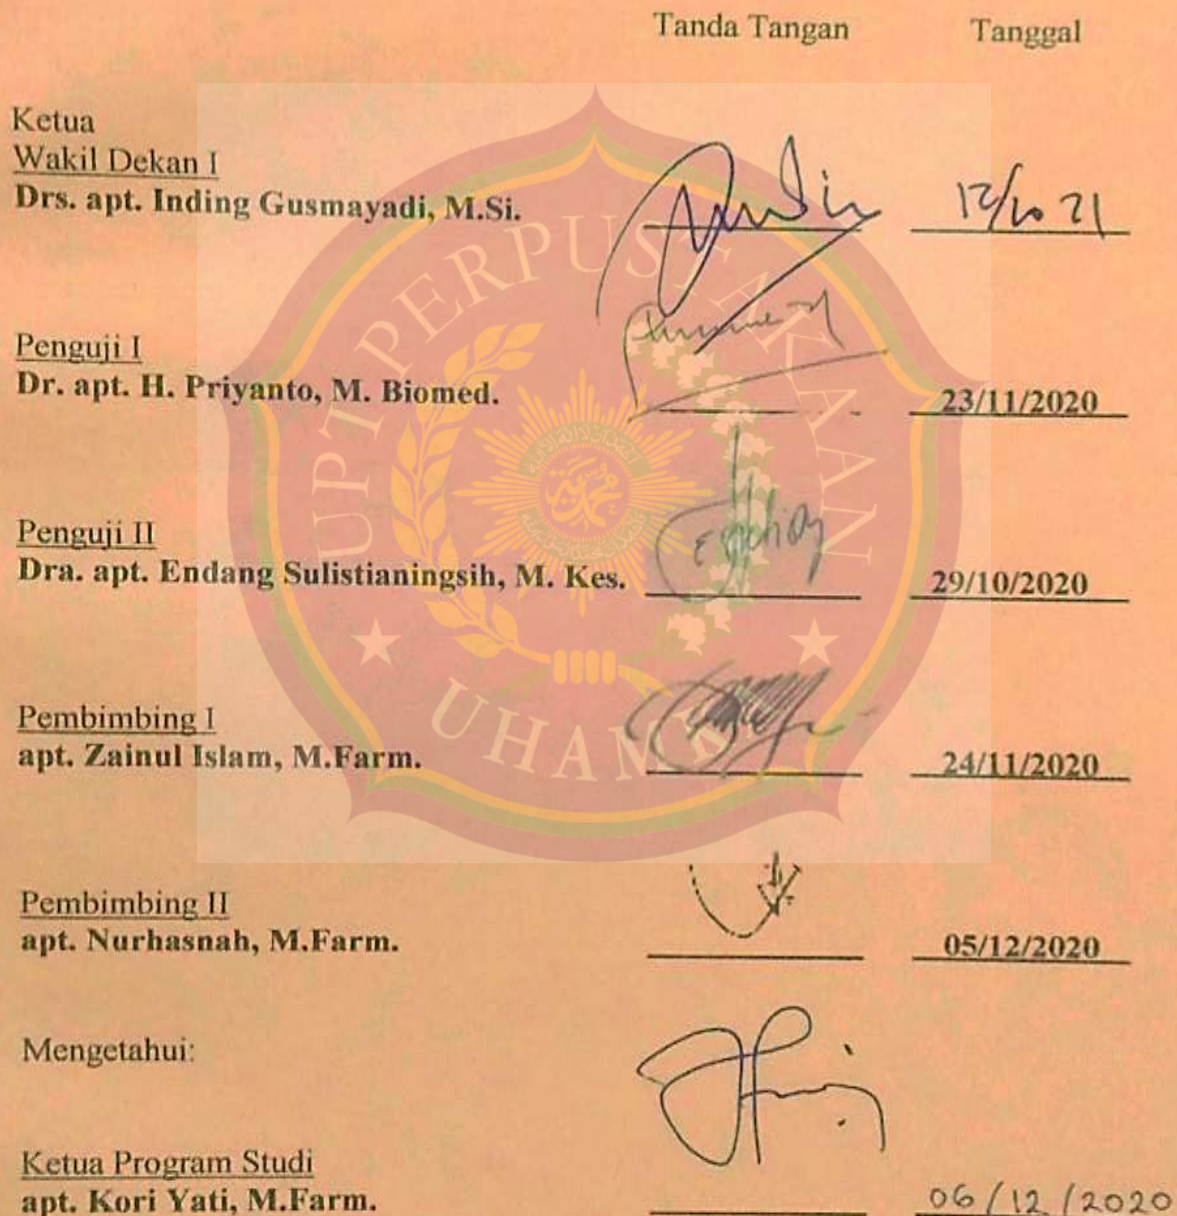 Tanda Tangan Tanggal
Ketua
Wakil Dekan I
Drs. apt. Inding Gusmayadi, M.Si.
Penguji I
Dr. apt. H. Priyanto, M. Biomed. 23/11/2020
Penguji II
Dra. apt. Endang Sulistianingsih, M. Kes. 29/10/2020
Pembimbing I
apt. Zainul Islam, M.Farm. 24/11/2020
Pembimbing II
apt. Nurhasnah, M.Farm. 05/12/2020
Mengetahui:
Ketua Program Studi
apt. Kori Yati, M.Farm. 06/12/2020
UPT PERPUSTAKAAN
UHAMKA